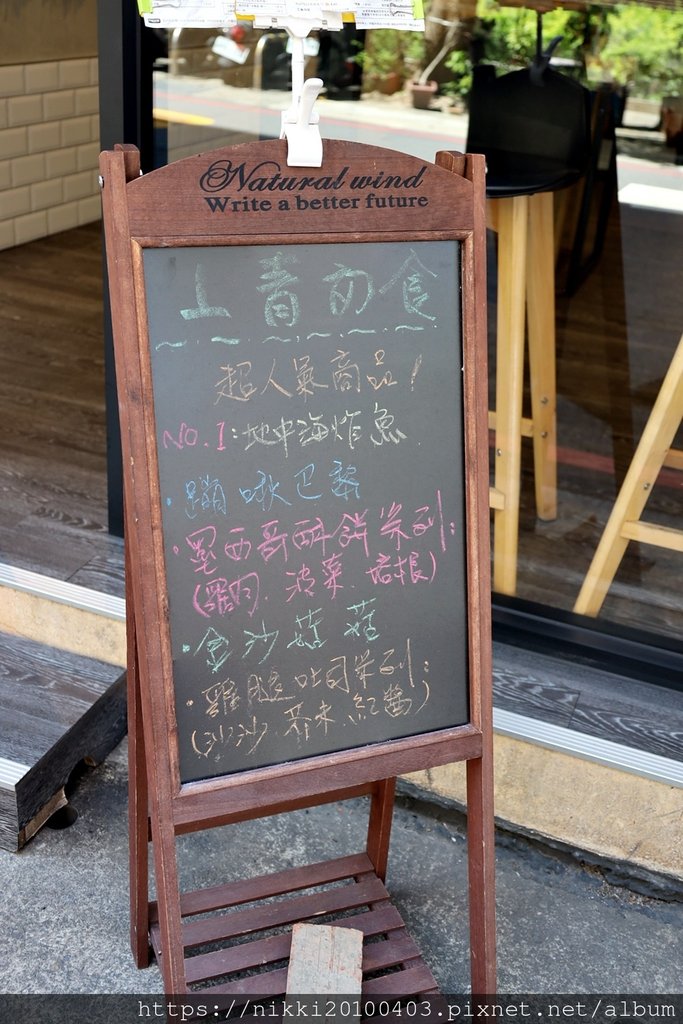 Natural wind
Write a better future
上青初食
超人氣商品!
NO.1:地中海炸魚
·蹦啾巴黎
·墨西哥酥餅系列:
(雞肉、波菜、培根)
·金沙菇菇
·雞腿吐司系列:
(沙沙、芥末、紅醬)
https://nikki20100403.pixnet.net/album